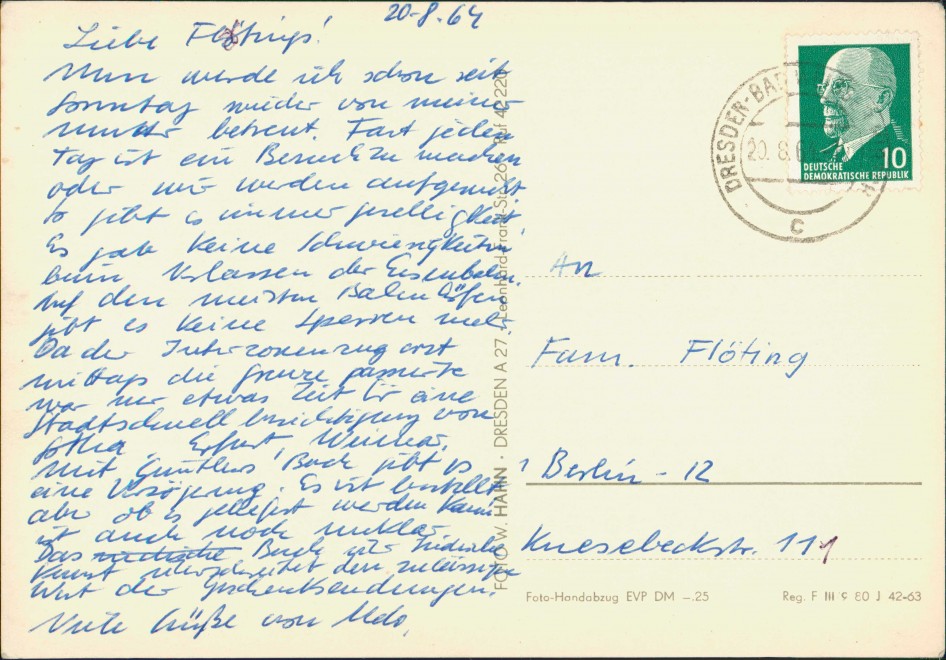 20-8-64
Liebe Flötings!
Nun werde ich schon seit
Sonntag wieder von meiner
Mutter betreut. Fast jeden
Tag ist ein Besuch zu machen
oder wir werden aufgesucht.
So gibt es immer Geselligkeit.
Es gab keine Schwierigkeiten
beim Verlassen der Eisenbahn.
Auf den meisten Bahnhöfen
gibt es keine Sperren mehr.
Da der Interzonenzug erst
mittags die Grenze passierte
war nur etwas Zeit für eine
Stadtschnellbesichtigung von
Gotha, Erfurt, Weimar.
Mit Günthers Buch gibt es
eine Verzögerung. Es ist bestellt
aber ob es geliefert werden kann
ist auch noch unklar.
Das Buch für Indische
Kunst überschreitet den zulässigen
Wert der Geschenksendungen.
Viele Grüße von Udo.
FOTO W. HAHN · DRESDEN A 27, Leonhard-Frank-Str. 26 · Ruf 42220
DRESDEN-BA
20. 8. 6
C
DEUTSCHE
DEMOKRATISCHE REPUBLIK
10
An
Fam. Flöting
1 Berlin - 12
Knesebeckstr. 11
Foto-Handabzug EVP DM –.25
Reg. F III 9 80 J 42-63